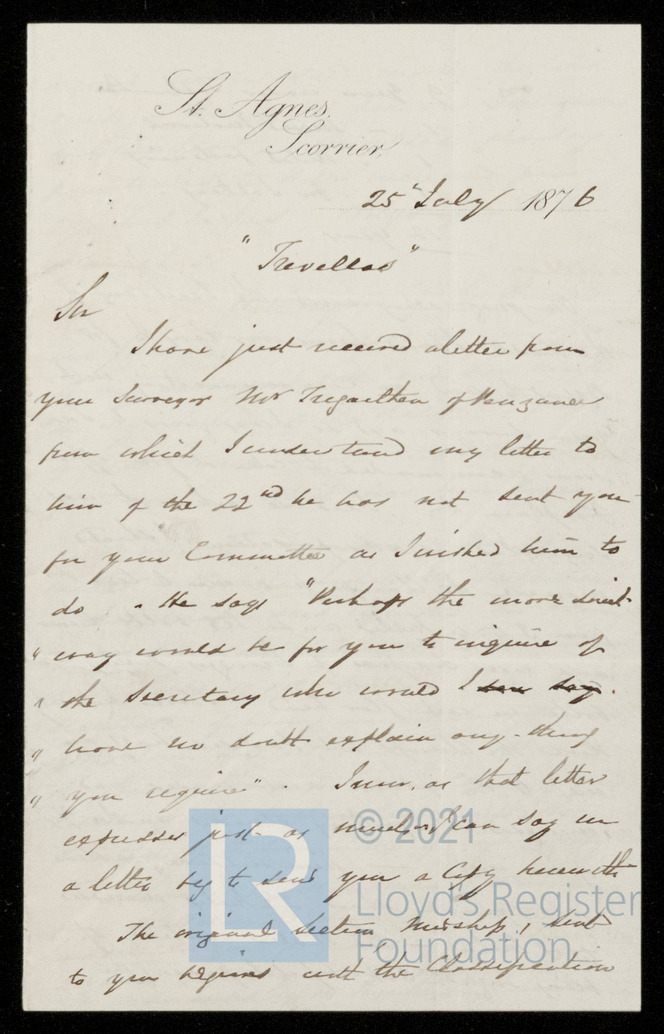 St. Agnes.
Scorrier.
25th July 1876
"Trevellas"
Sir
I have just received a letter from
your Surveyor Mr Tregarthen of Penzance
from which I understand my letter to
him of the 22nd he has not sent you
for your Committee as I wished him to
do. He says "Perhaps the more direct
" way would be for you to inquire of
" the Secretary who would I
" have no doubt explain any-thing
" you require". as that letter
expresses just as much as I can say in
a letter beg to send you a Copy herewith
The original Section Midship, I sent
to you begins with the Classification
LR
© 2021
Lloyd's Register
Foundation